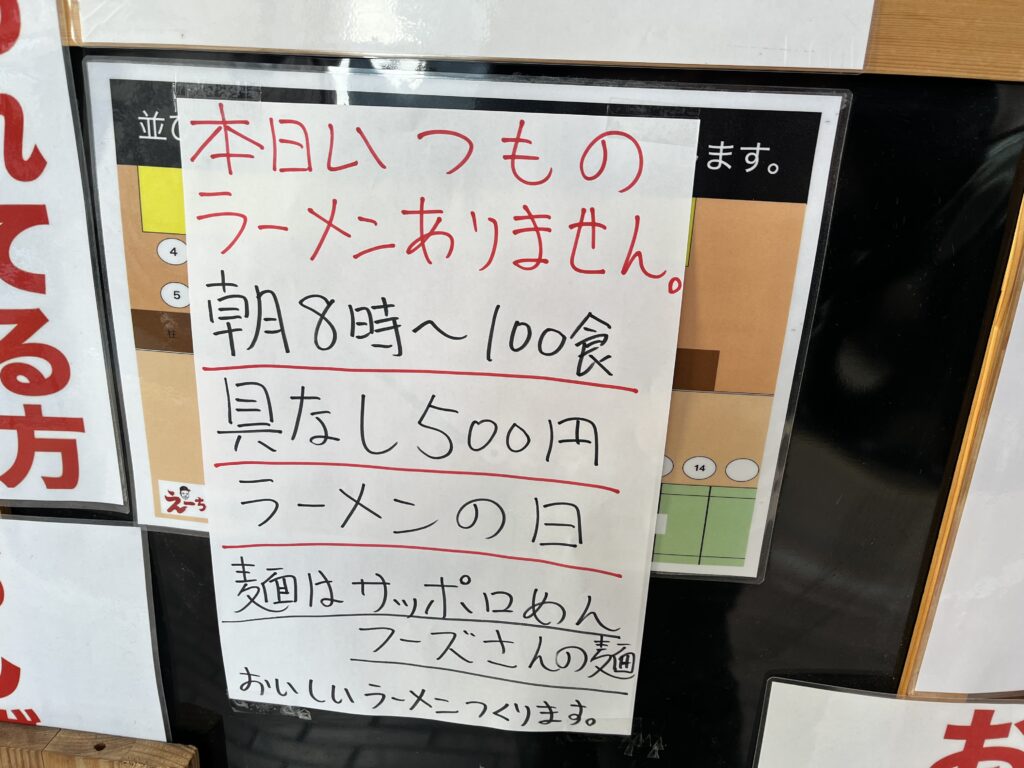 本日いつもの
ラーメンありません。
朝8時〜100食
具なし500円
ラーメンの日
麺はサッポロめん
フーズさんの麺
おいしいラーメンつくります。
並び
します。
4
5
14
えーち
れてる方
お